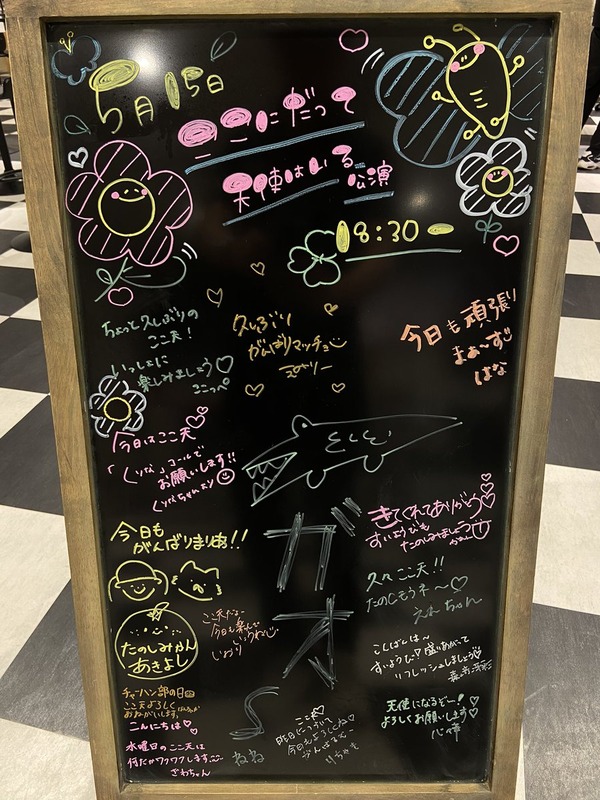 5月15日
ここにだって
天使はいる
公演
18:30〜
ちょっと久しぶりの
ここ天!
いっしょに
楽しみましょう♡
ここっぺ
久しぶり
がんばりマッチョ
今日も頑張り
まぁーす
はな
今日はここ天
「くりな」コールで
お願いします!!
くりなちゃんより
きてくれてありがとう
すいようびも
たのしみましょう
今日も
がんばりまりね!!
ガオ
久々ここ天!!
たのしもうネ〜♡
えれちゃん
たのしみかん
あきよし
ここ天だよー
今日も楽しんで
いこうね
しおり
こんばんは〜
すいようび!盛りあがって
リフレッシュしましょう
チャーハン部の日
ここ天よろしく
おねがいします。
こんにちは♡
水曜日のここ天は
何だかワクワクします
ざわちゃん
ねね
ここ天♡
今日もよろしくね♡
がんばるぞ〜
りちゃも
天使になるぞー!
よろしくお願いします♡